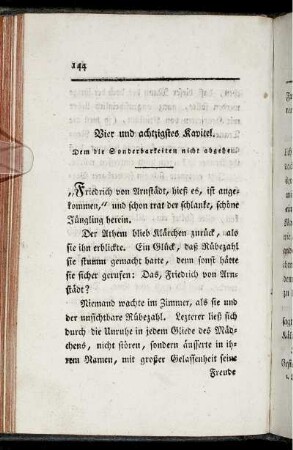 144
Vier und achtzigstes Kapitel.
Dem die Sonderbarkeiten nicht abgehen.
„Friedrich von Arnstädt, hieß es, ist ange-
kommen,“ und schon trat der schlanke, schöne
Jüngling herein.
Der Athem blieb Klärchen zurück, als
sie ihn erblickte. Ein Glück, daß Rübezahl
sie stumm gemacht hatte, denn sonst hätte
sie sicher gerufen: Das, Friedrich von Arn-
städt?
Niemand wachte im Zimmer, als sie und
der unsichtbare Rübezahl. Letzterer ließ sich
durch die Unruhe in jedem Gliede des Mäd-
chens, nicht stören, sondern äusserte in ih-
rem Namen, mit großer Gelassenheit seine
Freude